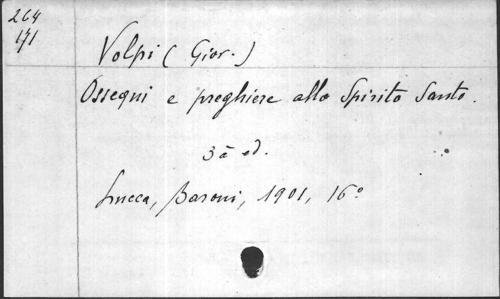 264
171
Volpi (Gior.)
Ossequi e preghiere allo Spirito Santo.
3a ed.
Lucca, Baroni, 1901, 16°